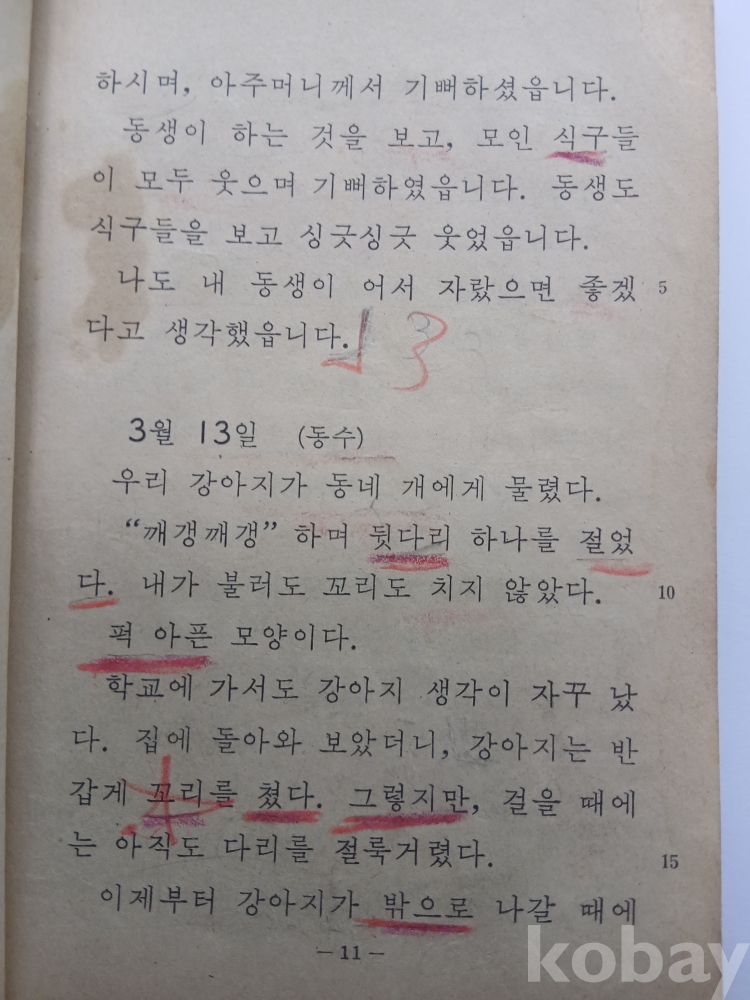 하시며, 아주머니께서 기뻐하셨읍니다.
동생이 하는 것을 보고, 모인 식구들
이 모두 웃으며 기뻐하였읍니다. 동생도
식구들을 보고 싱긋싱긋 웃었읍니다.
나도 내 동생이 어서 자랐으면 좋겠 5
다고 생각했읍니다.
13
3월 13일 (동수)
우리 강아지가 동네 개에게 물렸다.
“깨갱깨갱” 하며 뒷다리 하나를 절었
다. 내가 불러도 꼬리도 치지 않았다. 10
퍽 아픈 모양이다.
학교에 가서도 강아지 생각이 자꾸 났
다. 집에 돌아와 보았더니, 강아지는 반
갑게 꼬리를 쳤다. 그렇지만, 걸을 때에
는 아직도 다리를 절룩거렸다. 15
이제부터 강아지가 밖으로 나갈 때에
— 11 —
kobay